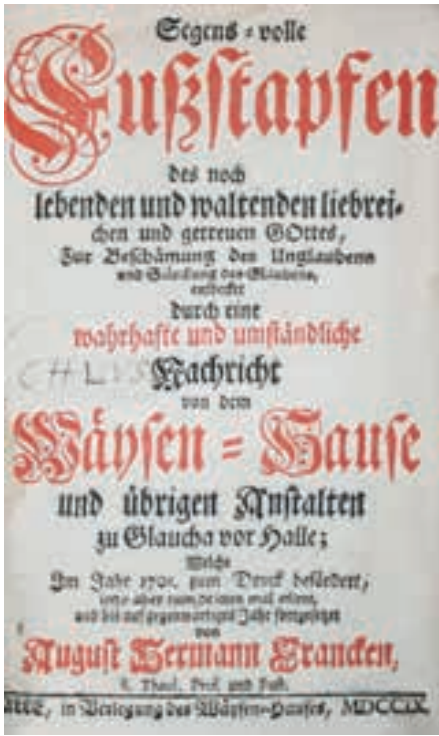 Segens-volle
Fußstapfen
des noch
lebenden und waltenden liebrei-
chen und getreuen GOttes,
Zur Beschämung des Unglaubens
und Stärckung des Glaubens,
entdecket
durch eine
wahrhafte und umständliche
Nachricht
von dem
Wäysen-Hause
und übrigen Anstalten
zu Glaucha vor Halle;
Welche
Im Jahr 1701. zum Druck befördert,
ietzo aber zum mal ediret,
und bis auf gegenwärtiges Jahr fortgesetzet
von
August Hermann Francken,
S. Theol. Prof. und Past.
HALLE, in Verlegung des Wäysen-Hauses, MDCCIX.